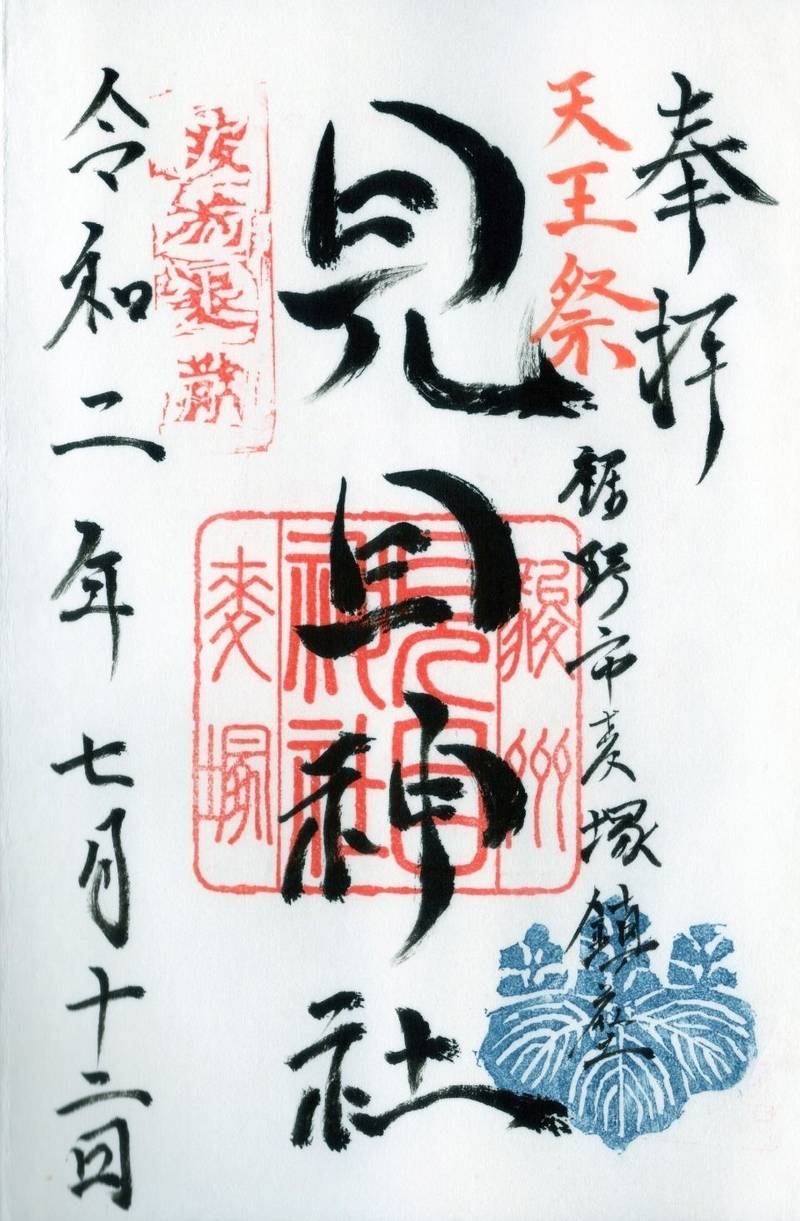 奉拝
天王祭
裾野市麦塚鎮座
見目神社
駿州
見目
神社
麦塚
疫病退散
令和二年七月十二日